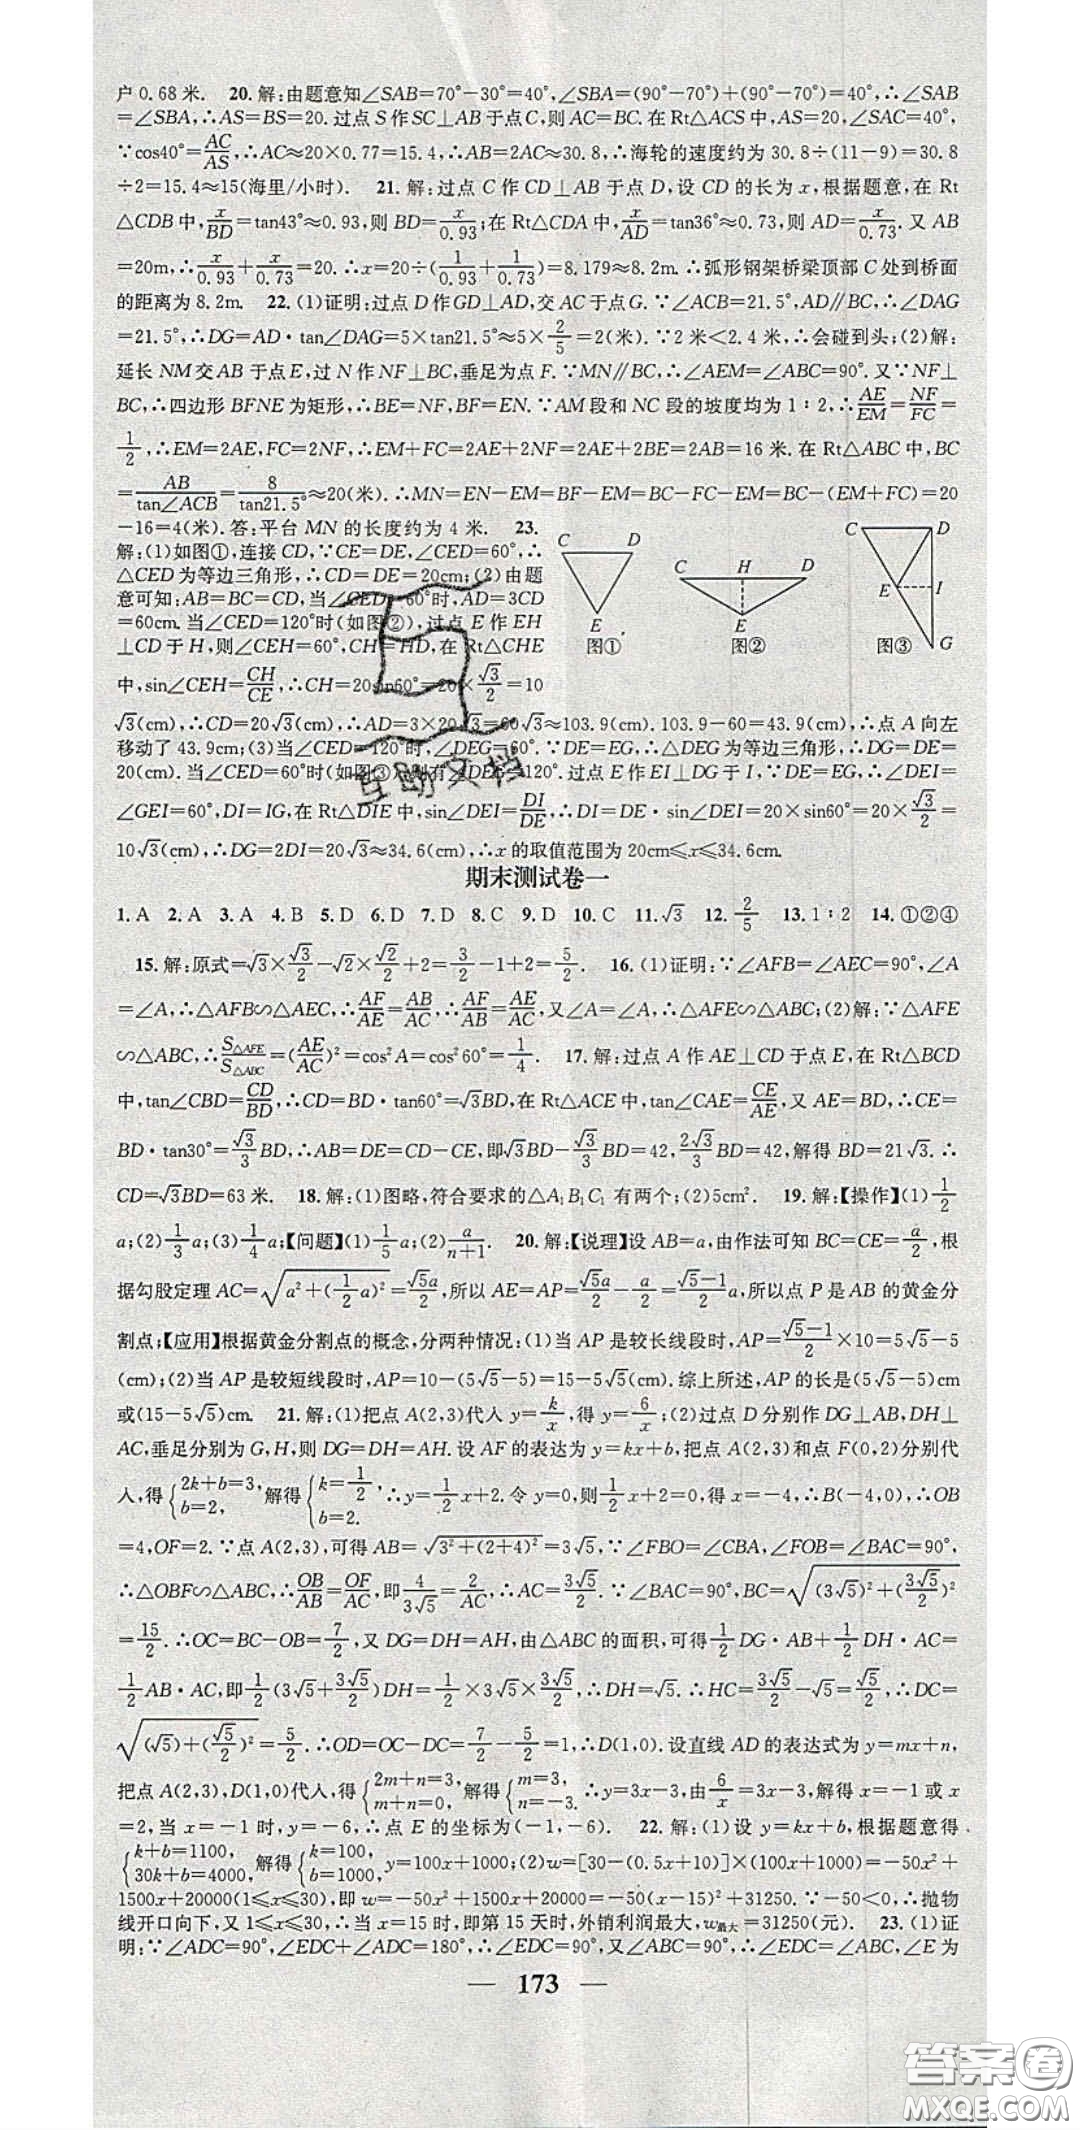 户0.68米. 20.解:由题意知∠SAB=70°-30°=40°,∠SBA=(90°-70°)+(90°-70°)=40°,∴∠SAB
=∠SBA,∴AS=BS=20.过点S作SC⊥AB于点C,则AC=BC.在Rt△ACS中,AS=20,∠SAC=40°,
∵cos40°=AC/AS,∴AC≈20×0.77=15.4,∴AB=2AC≈30.8,∴海轮的速度约为30.8÷(11-9)=30.8
÷2=15.4≈15(海里/小时). 21.解:过点C作CD⊥AB于点D,设CD的长为x,根据题意,在Rt
△CDB中,x/BD=tan43°≈0.93,则BD=x/0.93;在Rt△CDA中,x/AD=tan36°≈0.73,则AD=x/0.73.又AB
=20m,∴x/0.93+x/0.73=20.∴x=20÷(1/0.93+1/0.73)=8.179≈8.2m.∴弧形钢架桥梁顶部C处到桥面
的距离为8.2m. 22.(1)证明:过点D作GD⊥AD,交AC于点G.∵∠ACB=21.5°,AD∥BC,∴∠DAG
=21.5°,∴DG=AD·tan∠DAG=5×tan21.5°≈5×2/5=2(米).∵2米<2.1米,∴会碰到头;(2)解:
延长NM交AB于点E,过N作NF⊥BC,垂足为点F.∵MN∥BC,∴∠AEM=∠ABC=90°.又∵NF⊥
BC,∴四边形BFNE为矩形,∴BE=NF,BF=EN.∵AM段和NC段的坡度均为1∶2,∴AE/EM=NF/FC=
1/2,∴EM=2AE,FC=2NF,∴EM+FC=2AE+2NF=2AE+2BE=2AB=16米.在Rt△ABC中,BC
=AB/tan∠ACB=8/tan21.5°≈20(米).∴MN=EN-EM=BF-EM=BC-FC-EM=BC-(EM+FC)=20
-16=4(米).答:平台MN的长度约为4米. 23.
解:(1)如图①,连接CD,∵CE=DE,∠CED=60°,∴
△CED为等边三角形,∴CD=DE=20cm;(2)由题
意可知:AB=BC=CD,当∠CED=60°时,AD=3CD
=60cm.当∠CED=120°时(如图②),过点E作EH
⊥CD于H,则∠CEH=60°,CH=HD,在Rt△CHE
中,sin∠CEH=CH/CE,∴CH=20sin60°=20×√3/2=10
C D E 图①
C H D E 图②
C D E I G 图③
√3(cm),∴CD=20√3(cm),∴AD=3×20√3=60√3≈103.9(cm).103.9-60=43.9(cm),∴点A向左
移动了43.9cm;(3)当∠CED=120°时,∠DEG=60°.∵DE=EG,∴△DEG为等边三角形,∴DG=DE=
20(cm).当∠CED=60°时(如图③),则有∠DEG=120°.过点E作EI⊥DG于I,∵DE=EG,∴∠DEI=
∠GEI=60°,DI=IG,在Rt△DIE中,sin∠DEI=DI/DE,∴DI=DE·sin∠DEI=20×sin60°=20×√3/2=
10√3(cm),∴DG=2DI=20√3≈34.6(cm),∴x的取值范围为20cm≤x≤34.6cm.
互助文档
期末测试卷一
1.A 2.A 3.A 4.B 5.D 6.D 7.D 8.C 9.D 10.C 11.√3 12.2/5 13.1∶2 14.①②④
15.解:原式=√3×√3/2-√2×√2/2+2=3/2-1+2=5/2. 16.(1)证明:∵∠AFB=∠AEC=90°,∠A
=∠A,∴△AFB∽△AEC,∴AF/AE=AB/AC,∴AF/AB=AE/AC,又∠A=∠A,∴△AFE∽△ABC;(2)解:∵△AFE
∽△ABC,∴S△AFE/S△ABC=(AE/AC)²=cos²A=cos²60°=1/4. 17.解:过点A作AE⊥CD于点E,在Rt△BCD
中,tan∠CBD=CD/BD,∴CD=BD·tan60°=√3BD,在Rt△ACE中,tan∠CAE=CE/AE,又AE=BD,∴CE=
BD·tan30°=√3/3BD,∴AB=DE=CD-CE,即√3BD-√3/3BD=42,2√3/3BD=42,解得BD=21√3.∴
CD=√3BD=63米. 18.解:(1)图略,符合要求的△A₁B₁C₁有两个;(2)5cm². 19.解:【操作】(1)1/2
a;(2)1/3a;(3)1/4a;【问题】(1)1/5a;(2)a/(n+1). 20.解:【说理】设AB=a,由作法可知BC=CE=a/2,根
据勾股定理AC=√(a²+(1/2a)²)=√5a/2,所以AE=AP=√5a/2-a/2=(√5-1)/2a,所以点P是AB的黄金分
割点;【应用】根据黄金分割点的概念,分两种情况:(1)当AP是较长线段时,AP=(√5-1)/2×10=5√5-5
(cm);(2)当AP是较短线段时,AP=10-(5√5-5)=15-5√5(cm).综上所述,AP的长是(5√5-5)cm
或(15-5√5)cm. 21.解:(1)把点A(2,3)代人y=k/x,得y=6/x;(2)过点D分别作DG⊥AB,DH⊥
AC,垂足分别为G,H,则DG=DH=AH.设AF的表达为y=kx+b,把点A(2,3)和点F(0,2)分别代
人,得{2k+b=3, b=2, 解得{k=1/2, b=2. ∴y=1/2x+2.令y=0,则1/2x+2=0,得x=-4,∴B(-4,0),∴OB
=4,OF=2.∵点A(2,3),可得AB=√(3²+(2+4)²)=3√5,∵∠FBO=∠CBA,∠FOB=∠BAC=90°,
∴△OBF∽△ABC,∴OB/AB=OF/AC,即4/3√5=2/AC,∴AC=3√5/2.∵∠BAC=90°,BC=√((3√5)²+(3√5/2)²
=15/2.∴OC=BC-OB=7/2,又DG=DH=AH,由△ABC的面积,可得1/2DG·AB+1/2DH·AC=
1/2AB·AC,即1/2(3√5+3√5/2)DH=1/2×3√5×3√5/2,∴DH=√5.∴HC=3√5/2-√5=√5/2,∴DC=
√((√5)+(√5/2)²)=5/2.∴OD=OC-DC=7/2-5/2=1,∴D(1,0).设直线AD的表达式为y=mx+n,
把点A(2,3),D(1,0)代人,得{2m+n=3, m+n=0, 解得{m=3, n=-3. ∴y=3x-3,由6/x=3x-3,解得x=-1或x
=2,当x=-1时,y=-6,∴点E的坐标为(-1,-6). 22.解:(1)设y=kx+b,根据题意得
{k+b=1100, 30k+b=4000, 解得{k=100, b=1000, y=100x+1000;(2)w=[30-(0.5x+10)]×(100x+1000)=-50x²+
1500x+20000(1≤x≤30),即w=-50x²+1500x+20000=-50(x-15)²+31250.∵-50<0,∴抛物
线开口向下,又1≤x≤30,∴当x=15时,即第15天时,外销利润最大,w最大=31250(元). 23.(1)证
明:∵∠ADC=90°,∠EDC+∠ADC=180°,∴∠EDC=90°,又∠ABC=90°,∴∠EDC=∠ABC,∠E为
— 173 —
答案圈
MXQE.COM